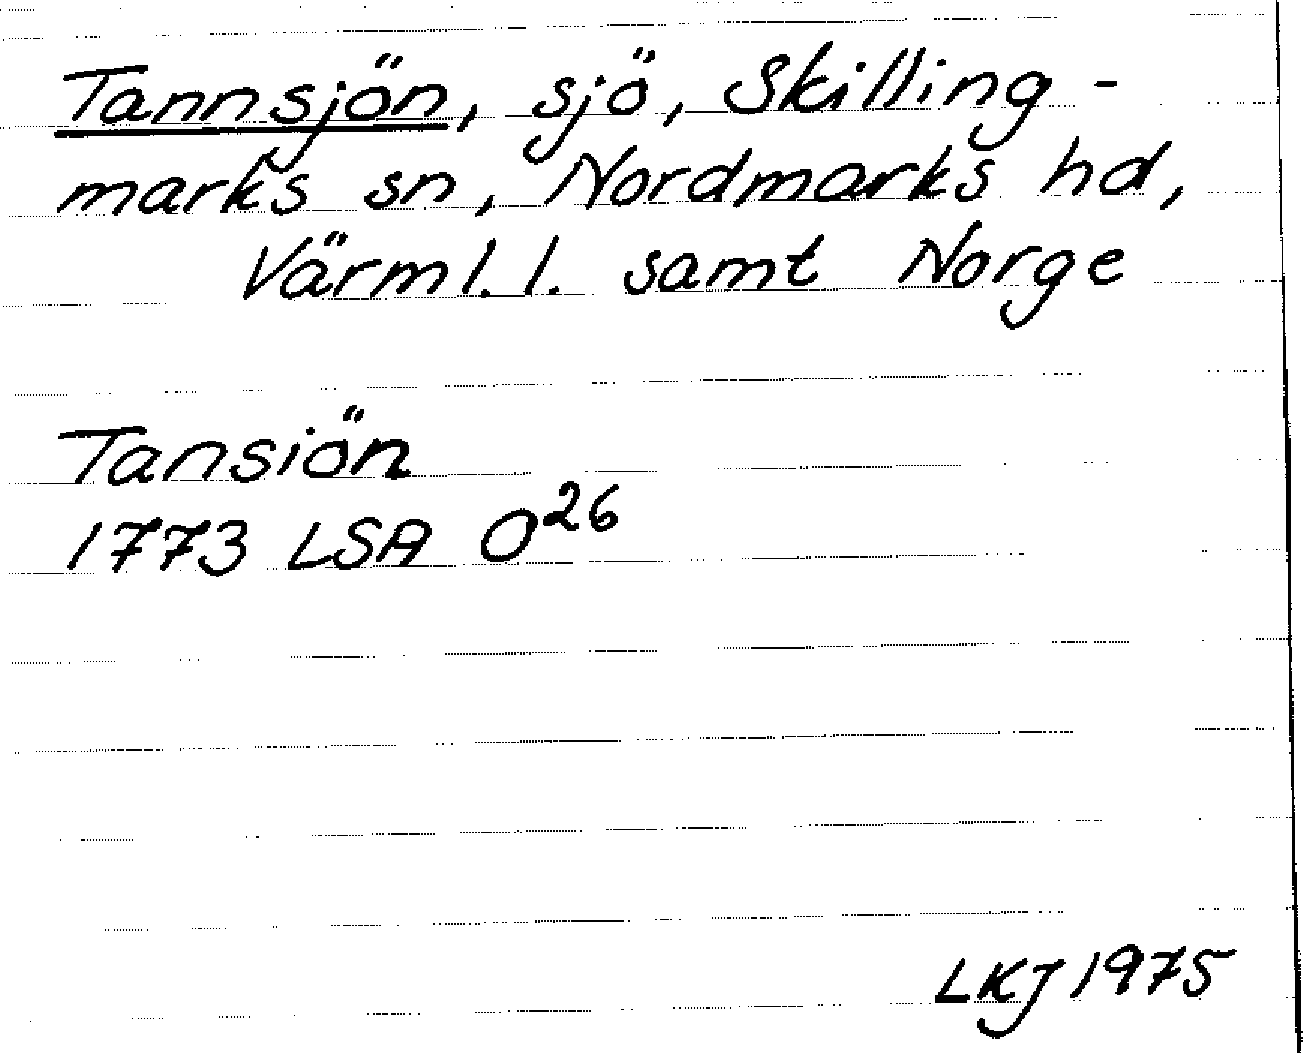 Tannsjön, sjö, Skilling-
marks sn, Nordmarks hd,
Värml. l. samt Norge
Tansiön
1773 LSA O26
LKJ 1975